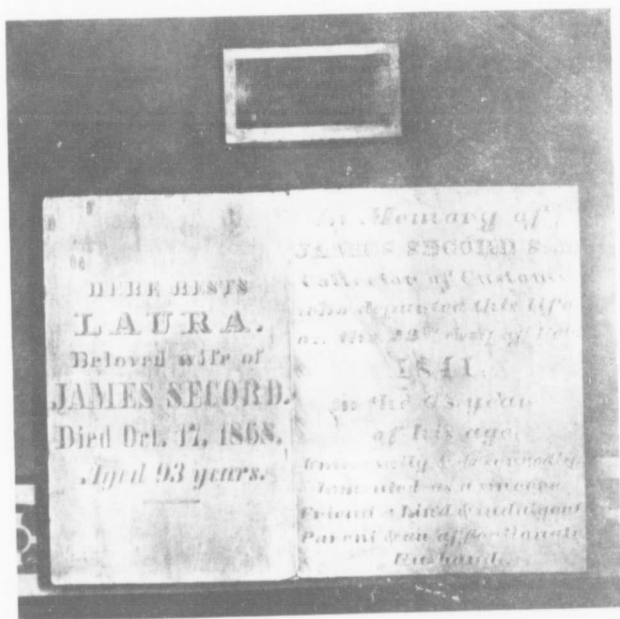 HERE RESTS
LAURA.
Beloved wife of
JAMES SECORD.
Died Oct. 17, 1868.
Aged 93 years.
In Memory of
JAMES SECORD
Collector of Customs
who departed this life
the 22nd day of
1841.
In the year
of his age,
Universally & deservedly
lamented as a sincere
Friend a kind & indulgent
Parent & an affectionate
Husband.